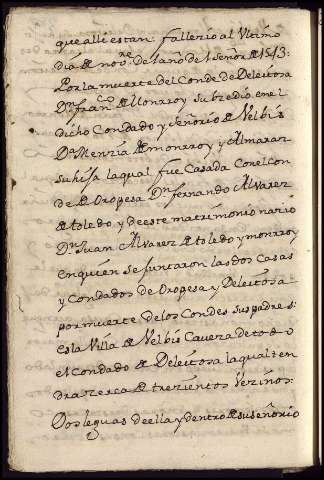 que alli estan: fallezio al Vltimo
dia de nore. del año del señor de 1543:
Por la muerte del Conde de Deleitosa
Dn. franco. de Monrroy subzedio en el
dicho Condado y señorio de Velbis
Da. Menzia de monrroy y Almaraz
su hija la qual fue Casada Con el con
de de Oropesa Dn. fernando Alvarez
de toledo, y de este matrimonio nazio
Dn. Juan Alvarez de toledo y monrroy
en quien se Juntaron las dos Casas
y Condados de Oropesa y Deleitosa
por muerte de los Condes sus padres:
es la Villa de Velbis Caveza de todo
el Condado de Deleitosa la qual ten
dra zerca de trezientos Vezinos:
Dos leguas de ella y dentro de su señorio